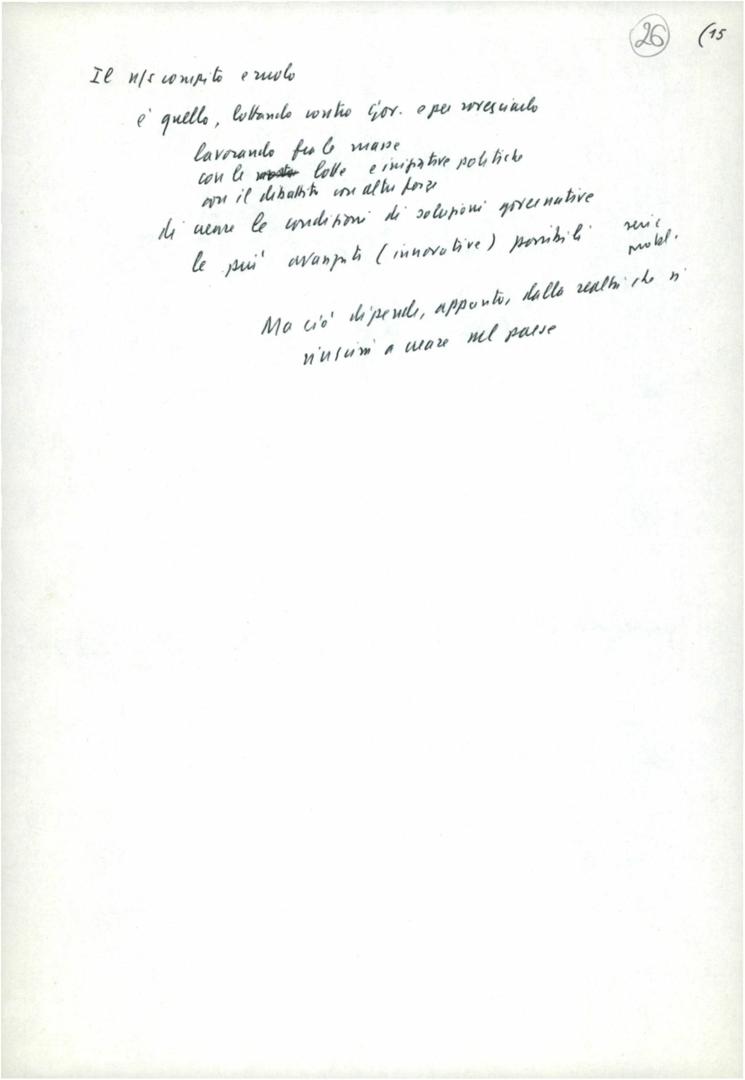 26 (15
Il n/s compito e ruolo
è quello, lottando contro Gov. e per rovesciarlo
lavorando fra le masse
con le lotte e iniziative politiche
con il dibattito con altre forze
di creare le condizioni di soluzioni governative
le più avanzate (innovative) possibili
probl.
Ma ciò dipende, appunto, dalla realtà che si
riuscirà a creare nel paese